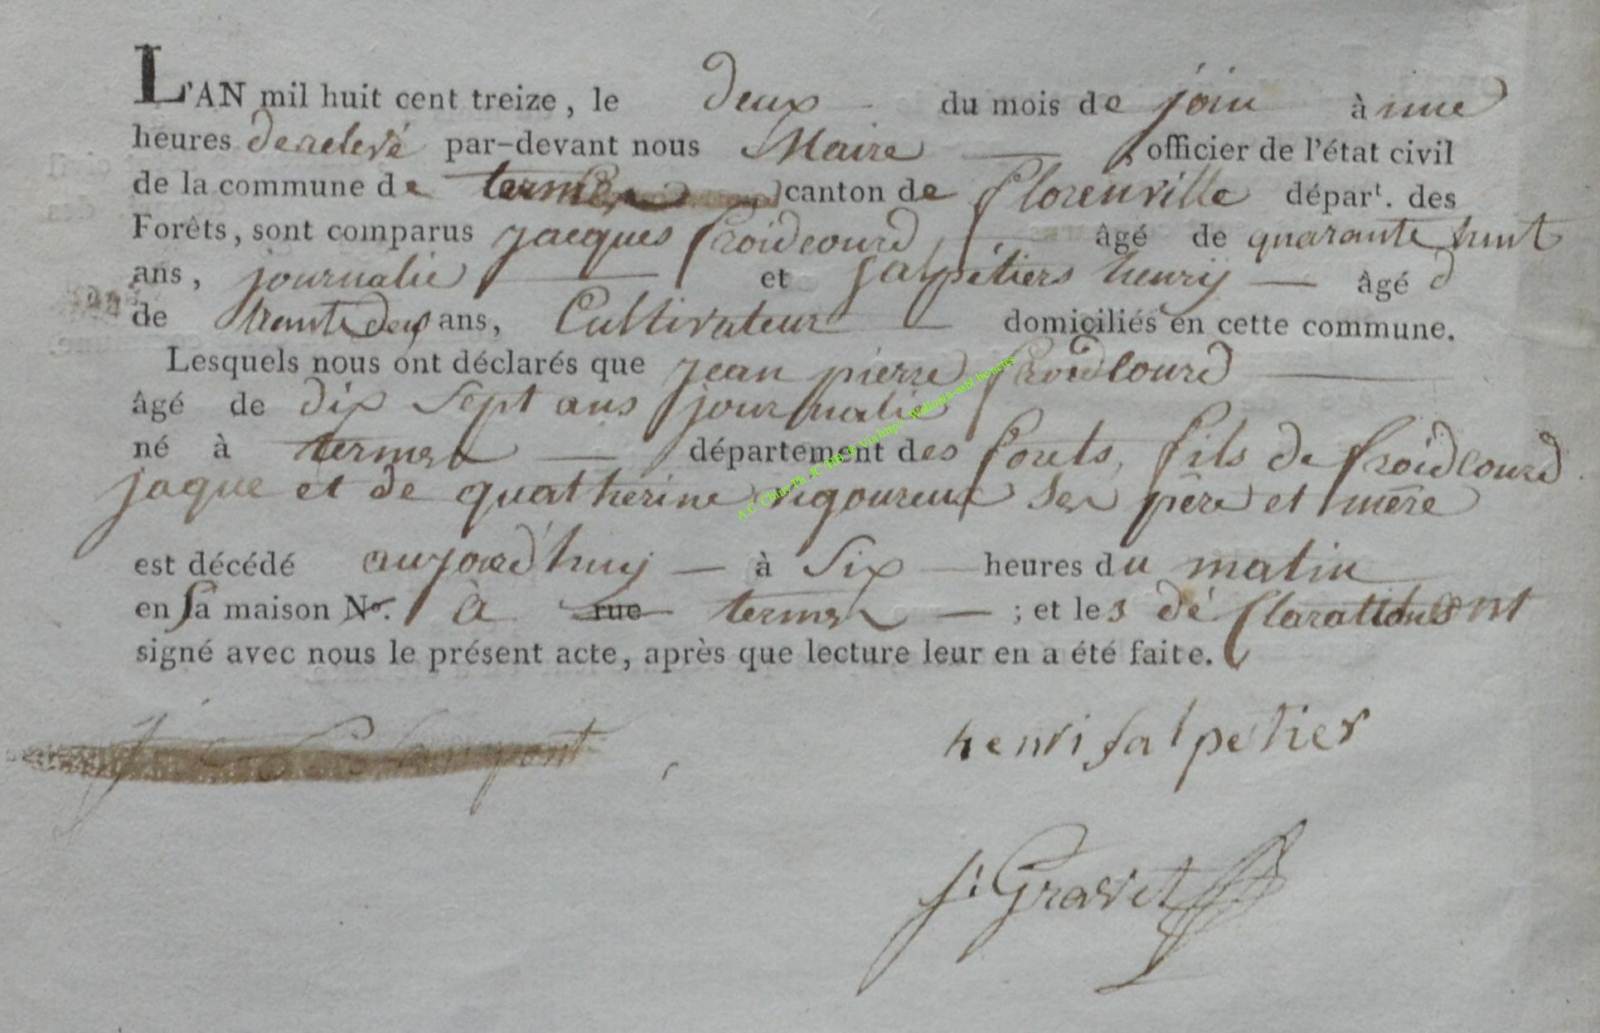 L'AN mil huit cent treize, le deux du mois de join à une
heures de relevé par-devant nous Maire officier de l'état civil
de la commune de termes canton de florenville départ. des
Forêts, sont comparus jacques froidcourd âgé de quarante huit
ans, journalie et salpétiers henrij âgé d
de trente deux ans, Cultivateur domiciliés en cette commune.
Lesquels nous ont déclarés que jean pierre froidcourd
âgé de dix sept ans journalie
né à termes département des forets, fils de froidcourd
jaque et de quatherine rigoureux ses père et mère
est décédé aujourd'huij à six heures du matin
en sa maison No. à rue termes ; et les dé clarations ont
signé avec nous le présent acte, après que lecture leur en a été faite.
henri salpetier
j: Gravet